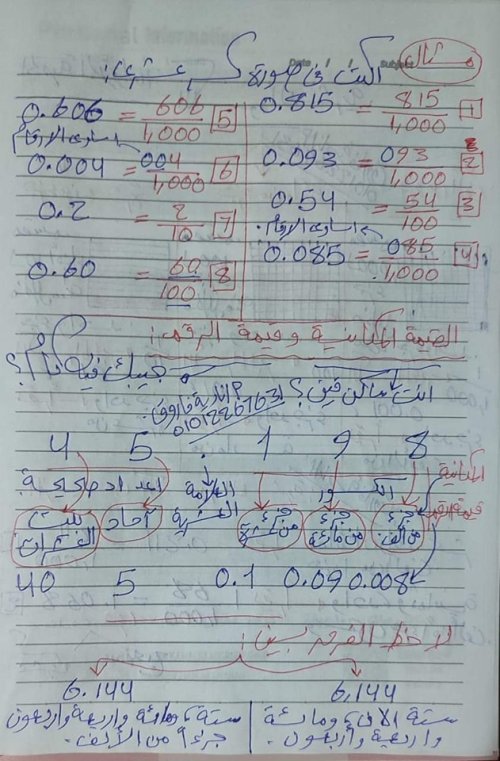 مثال
اكتب في صورة كسر عشري:
0.815 = 815/1,000 [1]
0.093 = 093/1,000 [2]
0.54 = 54/100 [3]
0.085 = 085/1,000 [4]
0.606 = 606/1,000 [5]
0.004 = 004/1,000 [6]
0.2 = 2/10 [7]
0.60 = 60/100 [8]
القيمة المكانية وقيمة الرقم:
انت ساكن فين؟ جيبك فيه كام؟
4 5 . 1 9 8
اعداد صحيحة العلامة العشرية الكسور المكانية
بيت العشرات آحاد جزء من عشرة جزء من مائة جزء من ألف
قيمة الرقم
40 5 0.1 0.09 0.008
لاحظ الفرق بين:
6,144
ستة الآف ومائة
وأربعة وأربعون.
6.144
ستة، ومائة وأربعة وأربعون
جزءًا من الألف.